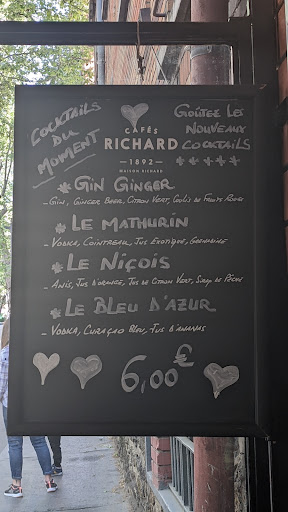 CAFÉS RICHARD
COCKTAILS
DU
MOMENT
CAFÉS
RICHARD
1892
MAISON RICHARD
GOÛTEZ LES
NOUVEAUX
COCKTAILS
* GIN GINGER
- GIN, GINGER BEER, CITRON VERT, COULIS DE FRUITS ROUGES
* LE MATHURIN
- VODKA, COINTREAU, JUS EXOTIQUE, GRENADINE
* LE NIÇOIS
- ANIS, JUS D'ORANGE, JUS DE CITRON VERT, SIROP DE PÊCHE
* LE BLEU D'AZUR
- VODKA, CURAÇAO BLEU, JUS D'ANANAS
6,00 €